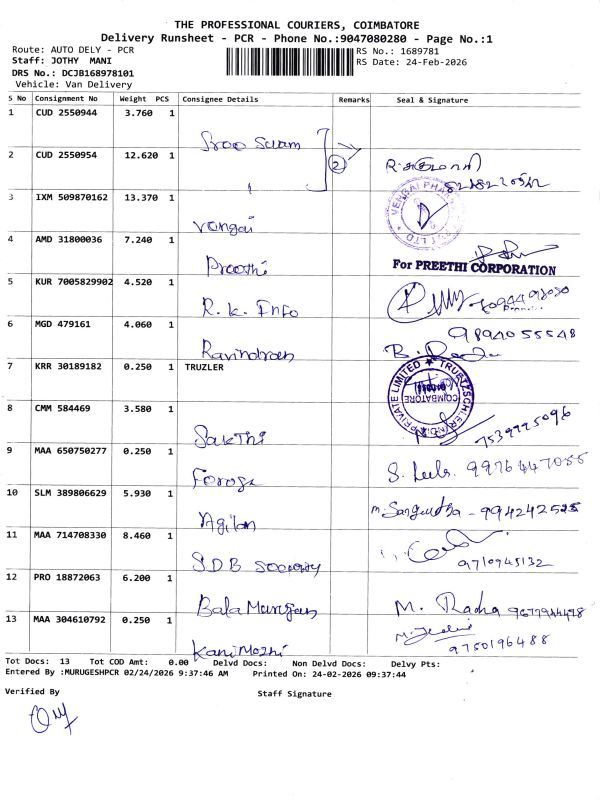 THE PROFESSIONAL COURIERS, COIMBATORE
Delivery Runsheet - PCR - Phone No.:9047080280 - Page No.:1
Route: AUTO DELY - PCR
RS No.: 1689781
Staff: JOTHY MANI
RS Date: 24-Feb-2026
DRS No.: DCJB168978101
Vehicle: Van Delivery
S No Consignment No Weight PCS Consignee Details Remarks Seal & Signature
1 CUD 2550944 3.760 1
2
2 CUD 2550954 12.620 1
3 IXM 509870162 13.370 1 vengai
4 AMD 31800036 7.240 1 Preethi
For PREETHI CORPORATION
5 KUR 7005829902 4.520 1 R.k. Info
6 MGD 479161 4.060 1 9894055548
7 KRR 30189182 0.250 1 TRUZLER
PRIVATE LIMITED COIMBATORE
8 CMM 584469 3.580 1 Sakthi 7539995096
9 MAA 650750277 0.250 1 9976447055
10 SLM 389806629 5.930 1 Agilan
11 MAA 714708330 8.460 1 SDB 9710945132
12 PRO 18872063 6.200 1 Bala M. Radha
13 MAA 304610792 0.250 1 Kanimozhi 9750196488
Tot Docs: 13 Tot COD Amt: 0.00 Delvd Docs: Non Delvd Docs: Delvy Pts:
Entered By :MURUGESHPCR 02/24/2026 9:37:46 AM Printed On: 24-02-2026 09:37:44
Verified By Staff Signature